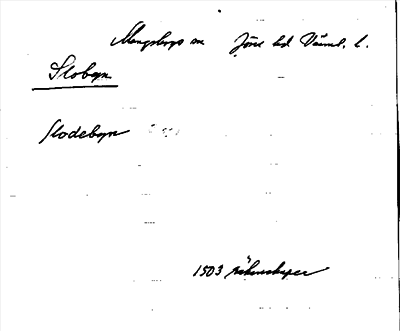 Mangskogs sn Jösse hd Värml. l.
Slobyn
Slodebyn
1503 räkenskaper